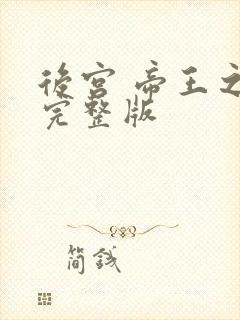 後宮 帝王之
完整版
简钱